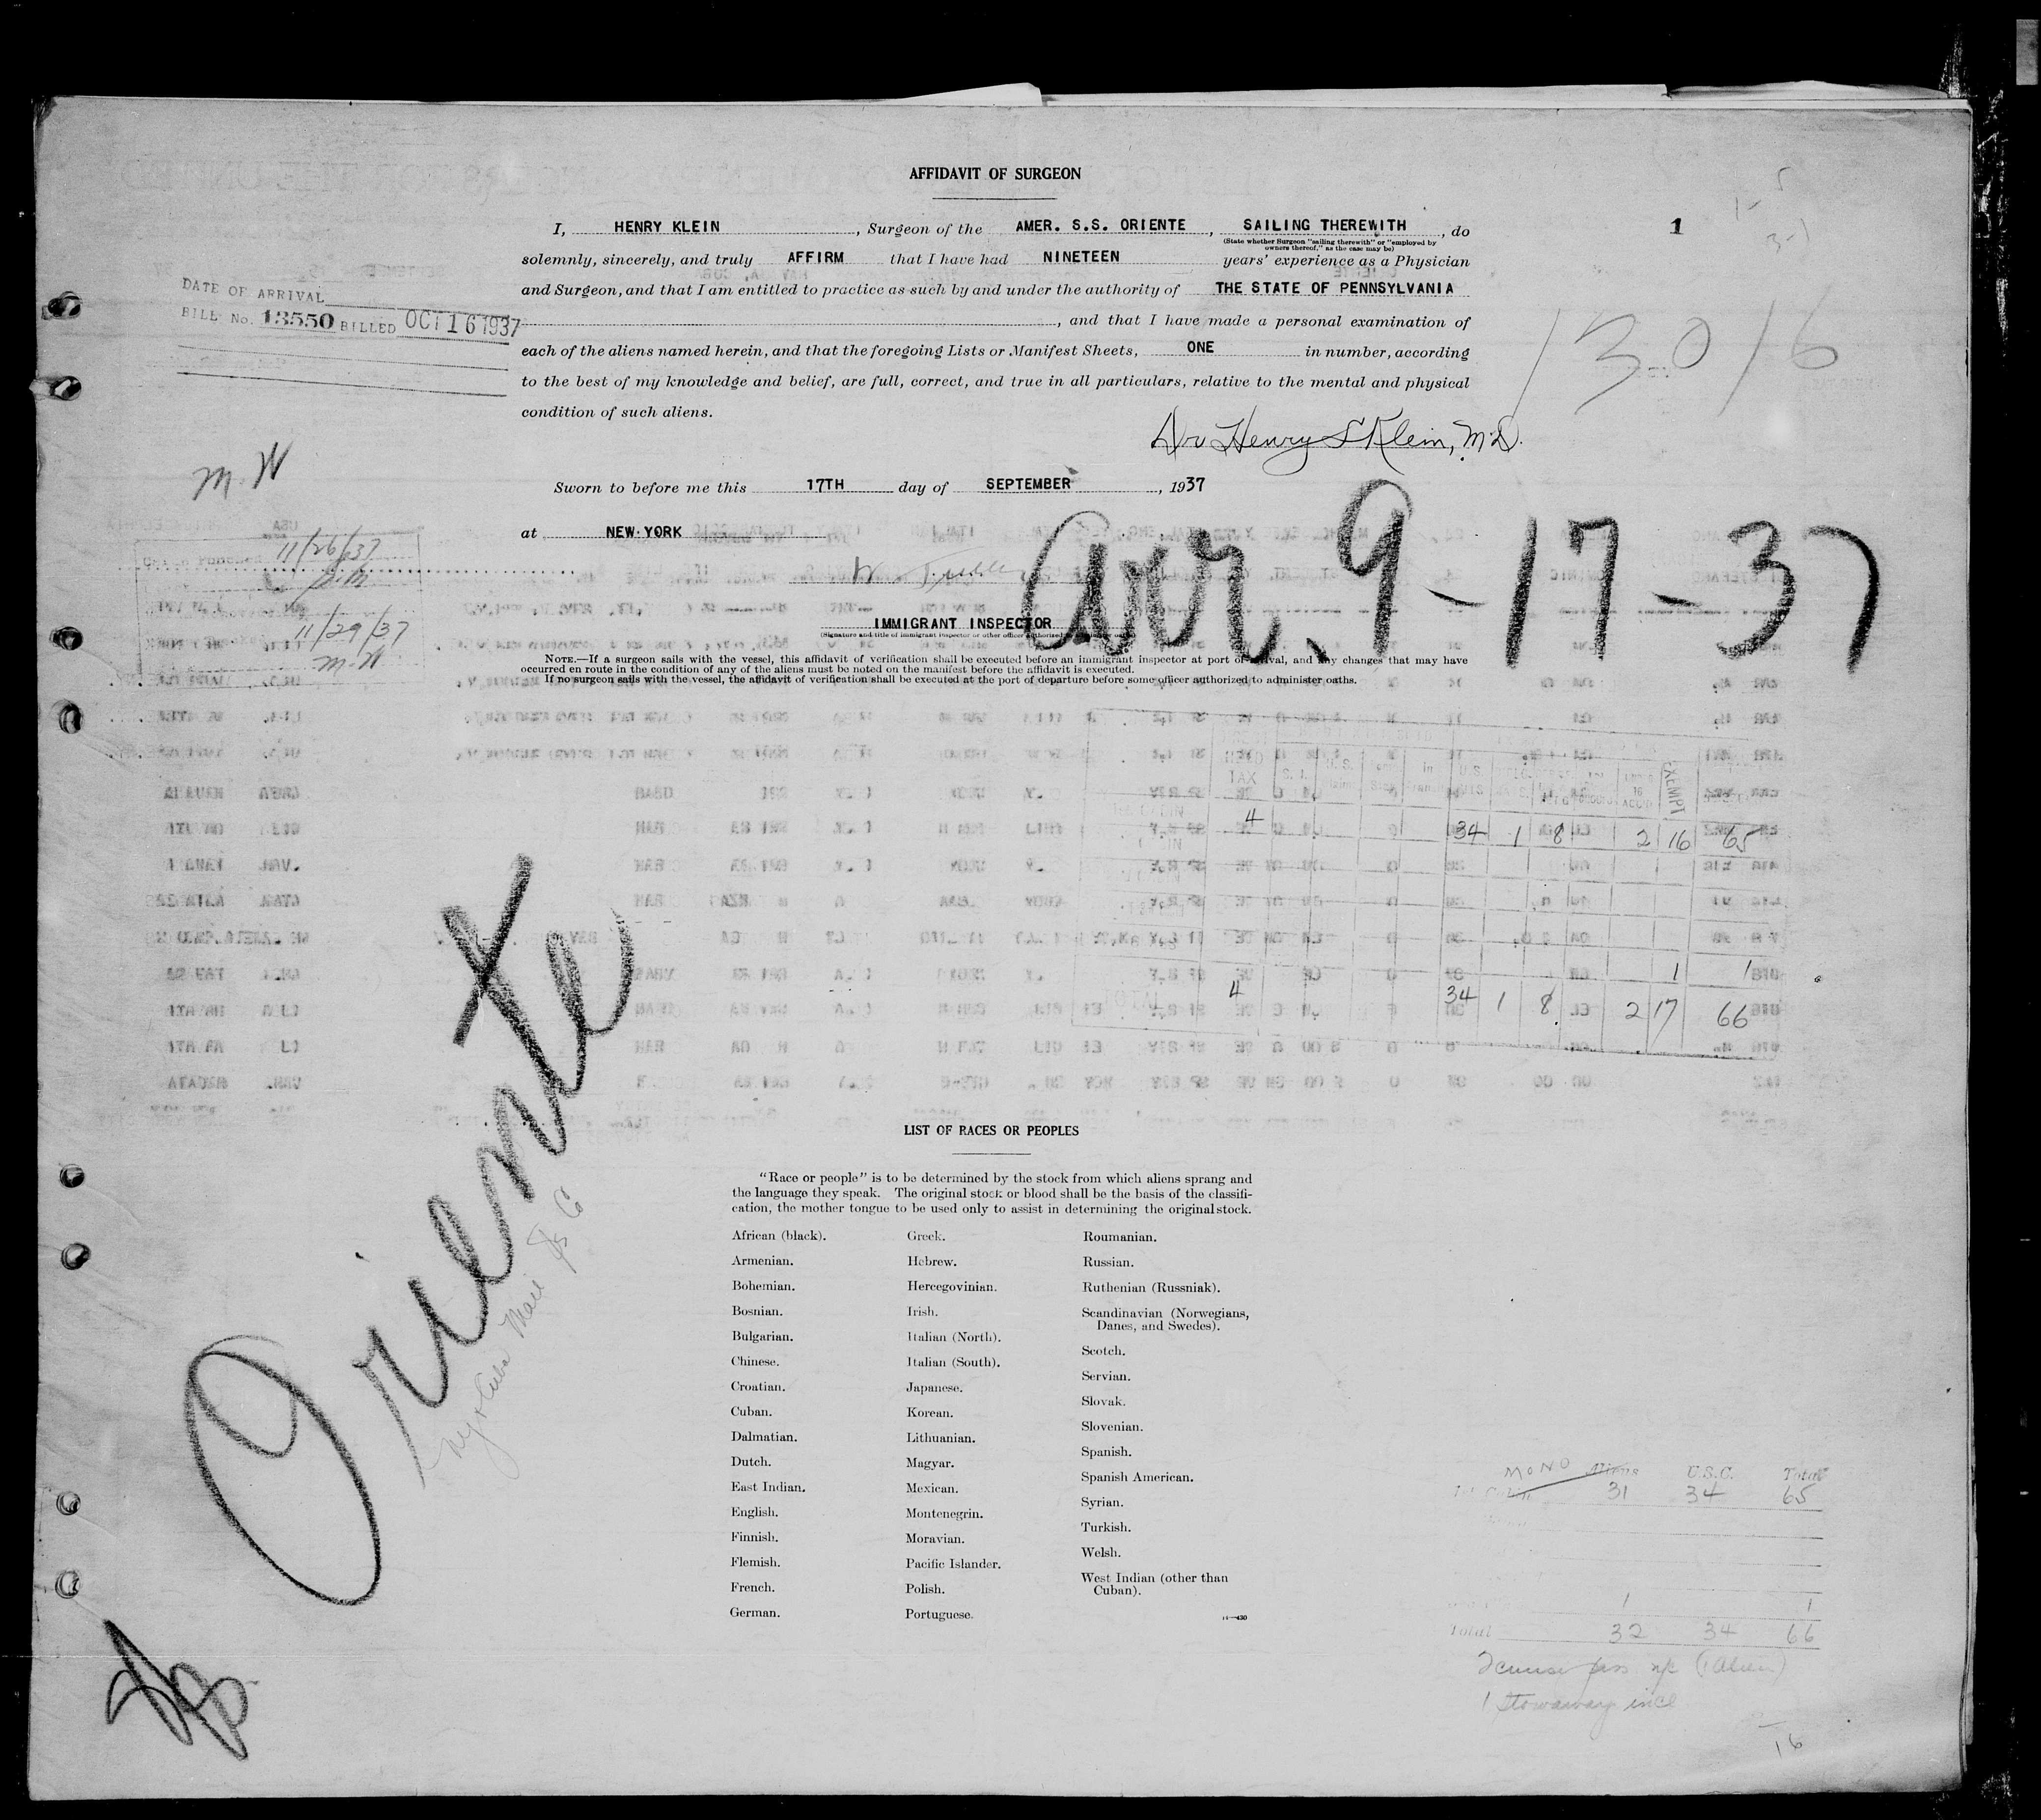 AFFIDAVIT OF SURGEON
I, HENRY KLEIN, Surgeon of the AMER. S.S. ORIENTE, SAILING THEREWITH, do
1
(State whether Surgeon "sailing therewith" or "employed by owners thereof," as the case may be)
solemnly, sincerely, and truly AFFIRM that I have had NINETEEN years' experience as a Physician
and Surgeon, and that I am entitled to practice as such by and under the authority of THE STATE OF PENNSYLVANIA
, and that I have made a personal examination of
each of the aliens named herein, and that the foregoing Lists or Manifest Sheets, ONE in number, according
to the best of my knowledge and belief, are full, correct, and true in all particulars, relative to the mental and physical
condition of such aliens.
DATE OF ARRIVAL
BILL No. 13550 BILLED OCT 16 1937
13016
Dr Henry S Klein, M.D.
M. W
Sworn to before me this 17TH day of SEPTEMBER, 1937
at NEW YORK
Arr. 9-17-37
11/26/37
11/29/37
M. W
IMMIGRANT INSPECTOR
(Signature and title of immigrant inspector or other officer authorized to administer oaths)
NOTE.—If a surgeon sails with the vessel, this affidavit of verification shall be executed before an immigrant inspector at port of arrival, and any changes that may have
occurred en route in the condition of any of the aliens must be noted on the manifest before the affidavit is executed.
If no surgeon sails with the vessel, the affidavit of verification shall be executed at the port of departure before some officer authorized to administer oaths.
HEAD TAX
EXEMPT
4 34 1 8 2 16 65
1 1
TOTAL 4 34 1 8 2 17 66
Oriente
N.Y. & Cuba Mail SS Co
LIST OF RACES OR PEOPLES
"Race or people" is to be determined by the stock from which aliens sprang and
the language they speak. The original stock or blood shall be the basis of the classifi-
cation, the mother tongue to be used only to assist in determining the original stock.
African (black).
Armenian.
Bohemian.
Bosnian.
Bulgarian.
Chinese.
Croatian.
Cuban.
Dalmatian.
Dutch.
East Indian.
English.
Finnish.
Flemish.
French.
German.
Greek.
Hebrew.
Hercegovinian.
Irish.
Italian (North).
Italian (South).
Japanese.
Korean.
Lithuanian.
Magyar.
Mexican.
Montenegrin.
Moravian.
Pacific Islander.
Polish.
Portuguese.
Roumanian.
Russian.
Ruthenian (Russniak).
Scandinavian (Norwegians,
Danes, and Swedes).
Scotch.
Servian.
Slovak.
Slovenian.
Spanish.
Spanish American.
Syrian.
Turkish.
Welsh.
West Indian (other than
Cuban).
MONO Aliens U.S.C. Total
31 34 65
1 1
Total 32 34 66
1 Stowaway incl
16